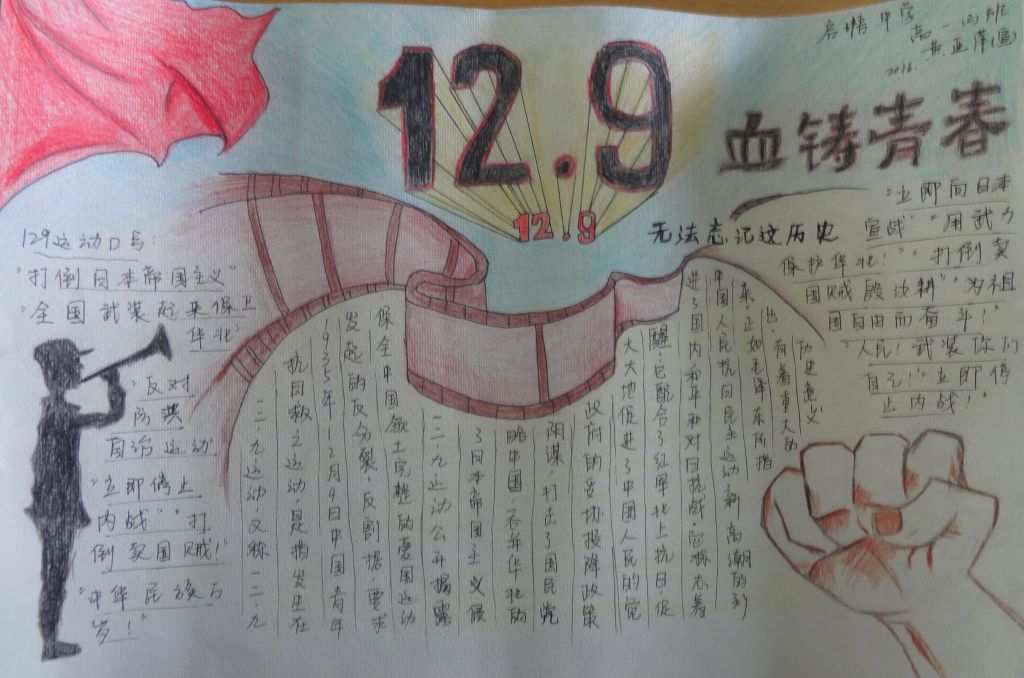 中学
高一四班
2016.
12.9
12.9
血铸青春
无法忘记这历史
129运动口号:
"打倒日本帝国主义"
"全国武装起来保卫
华北"
"反对
防共
自治运动
"立即停止
内战""打
倒卖国贼!"
"中华民族万
岁!"
一二九运动,又称一二·九
抗日救亡运动,是指发生在
1935年12月9日中国青年
发起的反分裂,反割据,要求
保全中国领土完整的爱国运动
一二九运动公开揭露
了日本帝国主义侵
略中国,吞并华北的
阴谋,打击了国民党
政府的妥协投降政策
大大地促进了中国人民的觉
醒.它配合了红军北上抗日,促
进了国内和平和对日抗战.它标志着
中国人民抗日民主运动新高潮的到
来.正如毛泽东所指
出,有着重大的
历史意义
"立即向日本
宣战""用武力
保护华北!""打倒卖
国贼殷汝耕""为祖
国自由而奋斗!"
"人民!武装你们
自己!""立即停
止内战!"